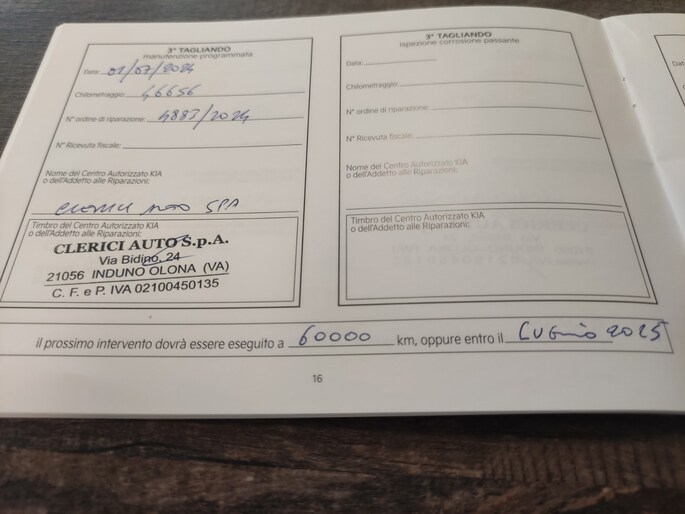 3° TAGLIANDO
manutenzione programmata
Data: 01/07/2024
Chilometraggio: 46656
N° ordine di riparazione: 4883/2024
N° Ricevuta fiscale:
Nome del Centro Autorizzato KIA
o dell'Addetto alle Riparazioni:
CLERICI AUTO SPA
Timbro del Centro Autorizzato KIA
o dell'Addetto alle Riparazioni:
CLERICI AUTO S.p.A.
Via Bidino, 24
21056 INDUNO OLONA (VA)
C. F. e P. IVA 02100450135
3° TAGLIANDO
ispezione corrosione passante
Data:
Chilometraggio:
N° ordine di riparazione:
N° Ricevuta fiscale:
Nome del Centro Autorizzato KIA
o dell'Addetto alle Riparazioni:
Timbro del Centro Autorizzato KIA
o dell'Addetto alle Riparazioni:
il prossimo intervento dovrà essere eseguito a 60000 km, oppure entro il LUGLIO 2025
16